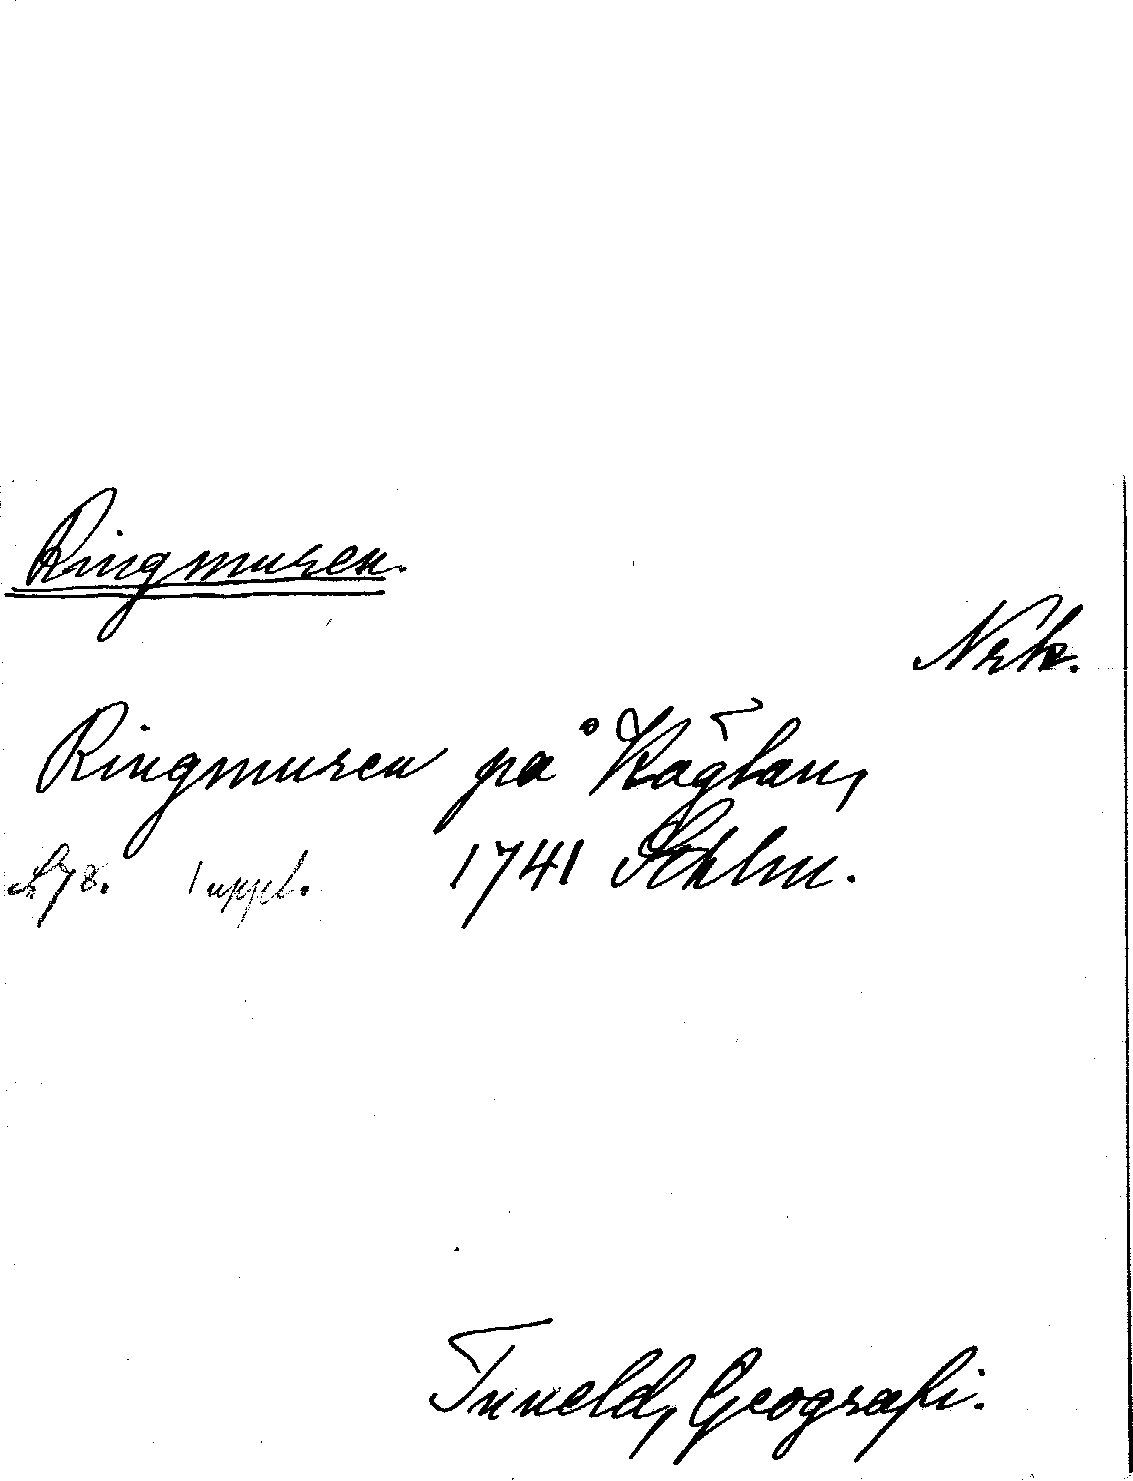 Ringmuren.
Nrk.
Ringmuren på Käglan,
1 uppl. 1741 Sthlm.
Tuneld, Geografi.